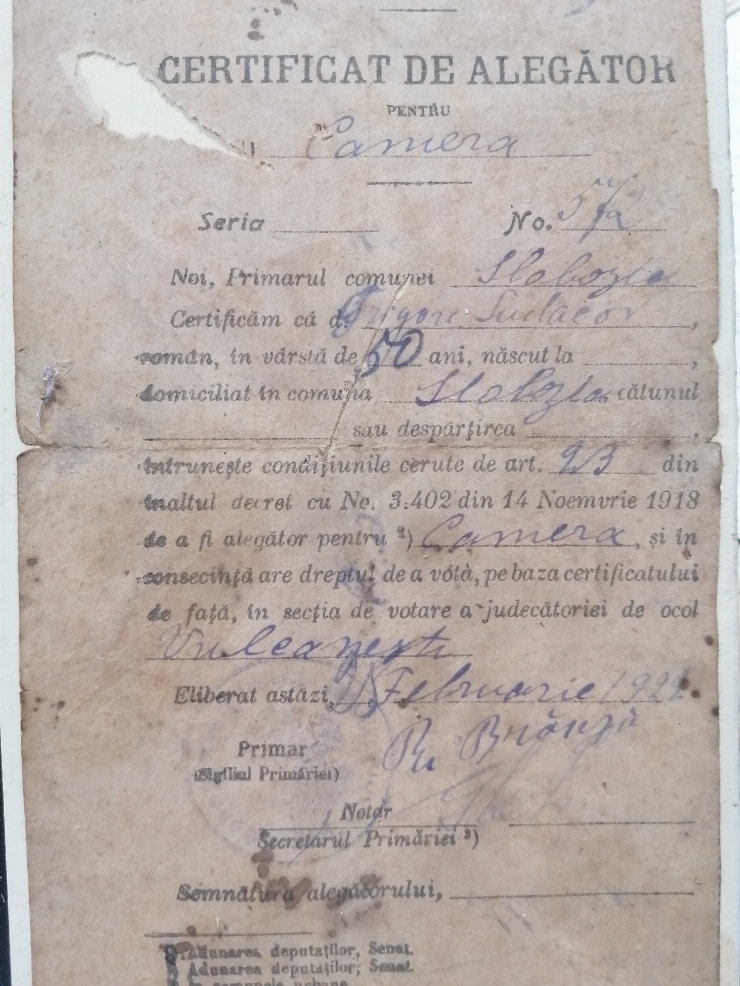 CERTIFICAT DE ALEGĂTOR
PENTRU
Camera
Seria No. 572
Noi, Primarul comunei Slobozia
Certificăm că d. Grigore
român, în vârstă de 50 ani, născut la ,
domiciliat în comuna Slobozia cătunul
sau despărțirea ,
întrunește condițiunile cerute de art. 23 din
înaltul decret cu No. 3.402 din 14 Noemvrie 1918
de a fi alegător pentru ²) Camera, și în
consecință are dreptul de a vota, pe baza certificatului
de față, în secția de votare a judecătoriei de ocol
Vulcanești
Eliberat astăzi, Februarie
Primar
(Sigiliul Primăriei)
Notar
Secretarul Primăriei ³)
Semnătura alegătorului,
Adunarea deputaților, Senat.
Adunarea deputaților, Senat.
în comunele urbane